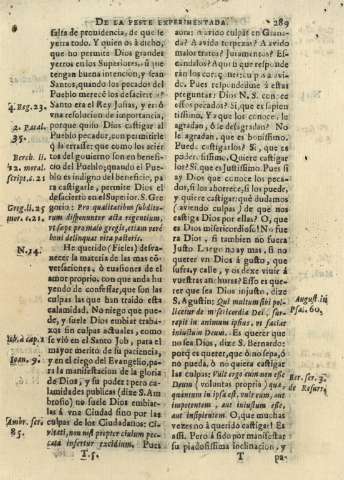 DE LA PESTE EXPERIMENTADA. 289
falta de providencia, de que le
yerra todo. Y quien os à dicho,
que no permite Dios grandes
yerros en los Superiores, aũ que
tengan buena intencion, y sean
Santos, quando los pecados del
Pueblo merecẽ los desacierto
4. Reg. 23.
Santo era el Rey Josias, y erró
vna resolucion de importancia,
2. Paral. 35.
porque quiso Dios castigar al
Pueblo pecador, con permitirle
q̃ la errasse: que como los acier
tos del gouierno son en benefi-
Berch. li. 12. moral. script. c. 21
cio del Pueblo, quando el Pue-
blo es indigno del beneficio, pa
ra castigarle, permite Dios el
desacierto en el Superior. S. Gre
Greg. li. 25 mor. c. 21.
gorio: Pro qualitatibus subdito-
rum disponuntur acta regentium,
vt sæpe pro malo gregis, etiam verè
boni delinquat vita pastoris.
N. 14.
He querido (Fieles) desva-
necer la materia de las mas cõ
versaciones, ó euasiones de el
amor proprio, con que anda hu
yendo de confessar, que son las
culpas las que han traido esta
calamidad. No niego que pue-
de, y suele Dios embiar traba-
xos sin culpas actuales, como
Iob. à cap. 1
se vió en el Santo Job, para el
mayor merito de su paciencia,
Ioan. 9.
y en el ciego del Evangelio, pa-
ra la manifestacion de la gloria
de Dios, y su poder: pero ca-
lamidades publicas (dize S. Am
brosio) no suele Dios embiar-
las á vna Ciudad sino por las
Ambr. ser. 85.
culpas de los Ciudadanos: Ci-
vitati, non nisi propter civium pec-
cata infertur excidium. Pues
T. 5.
aora: n avido culpas en Grana-
da? A avido torpezas? A avido
malos tratos? Juramentos? Es-
candalos? Aqui n que responde
rán los corazones: ya
avi-
do. Pues respondedme à estas
preguntas: Dios N. S. con. ce
estos pecados? Si, que es sapien
tissimo. Y a los que los conoce, le
agradan, ó le desagradan? No
le agradan, que es bonissimo.
Puede castigarlos? Si, que es
poderosissimo. Quiere castigar
los? Si que es Iustissimo. Pues si
ay Dios que conoce los peca-
dos, si los aborrece, si los puede,
y quiere castigar: què dudamos
(aviendo culpas) de que nos
castiga Dios por ellas? O, que
es Dios misericordioso! No fue
ra Dios, si tambien no fuera
Justo. Luego no ay mas, si no
querer vn Dios á gusto, que
sufra, y calle, y os dexe vivir á
vuestras anchuras? Esso es que-
rer que sea Dios injusto, dize
August. in Psal. 60.
S. Agustin: Qui multum sibi pol-
licetur de misericordia Dei, sur-
repit in animum ipsius, vt faciat
iniustum Deum. Es querer que
no sea Dios, dize S. Bernardo:
porq̃ es querer, que ò no sepa, ó
no pueda, ò no quiera castigar
las culpas: Vult ergo eum non esse
Ber. ser. 3. de Resurr.
Deum (voluntas propria) quæ,
quantum in ipsa est, vult eum, aut
impotentem, aut iniustum esse,
aut insipientem. O, que muchas
vezes no à querido castigar! Es
assi. Pero á sido por manifestar
su piadosissima inclinacion, y
T
pa-